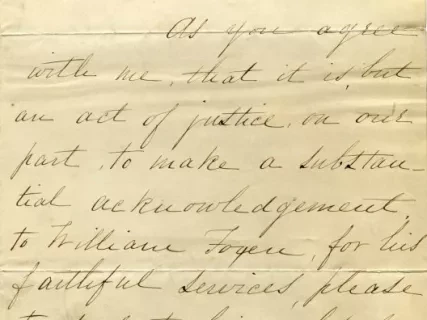 As you agree
with me, that it is but
an act of justice, on our
part, to make a substan-
tial acknowledgement,
to William Foyen, for his
faithful services, please